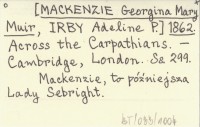 [MACKENZIE Georgina Mary
Muir, IRBY Adeline P.] 1862.
Across the Carpathians. —
Cambridge, London. S. 299.
Mackenzie, to późniejsza
Lady Sebright.
BT/033/1004